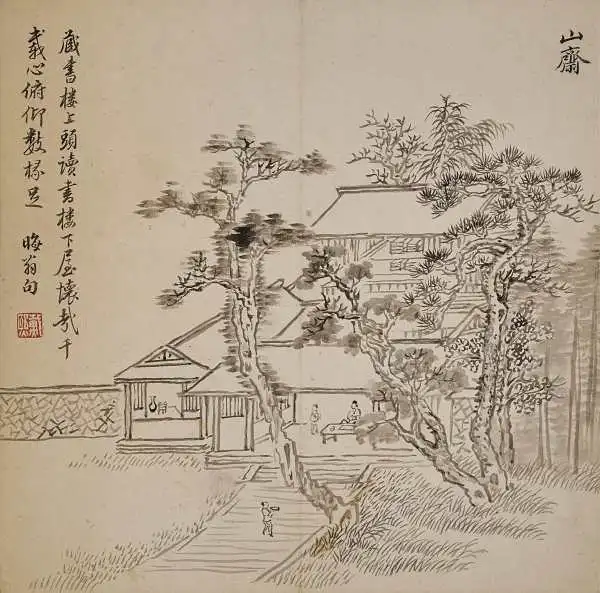 山齋
藏書樓上頭讀書樓下屋懷哉千
載心俯仰數椽足 晦翁句